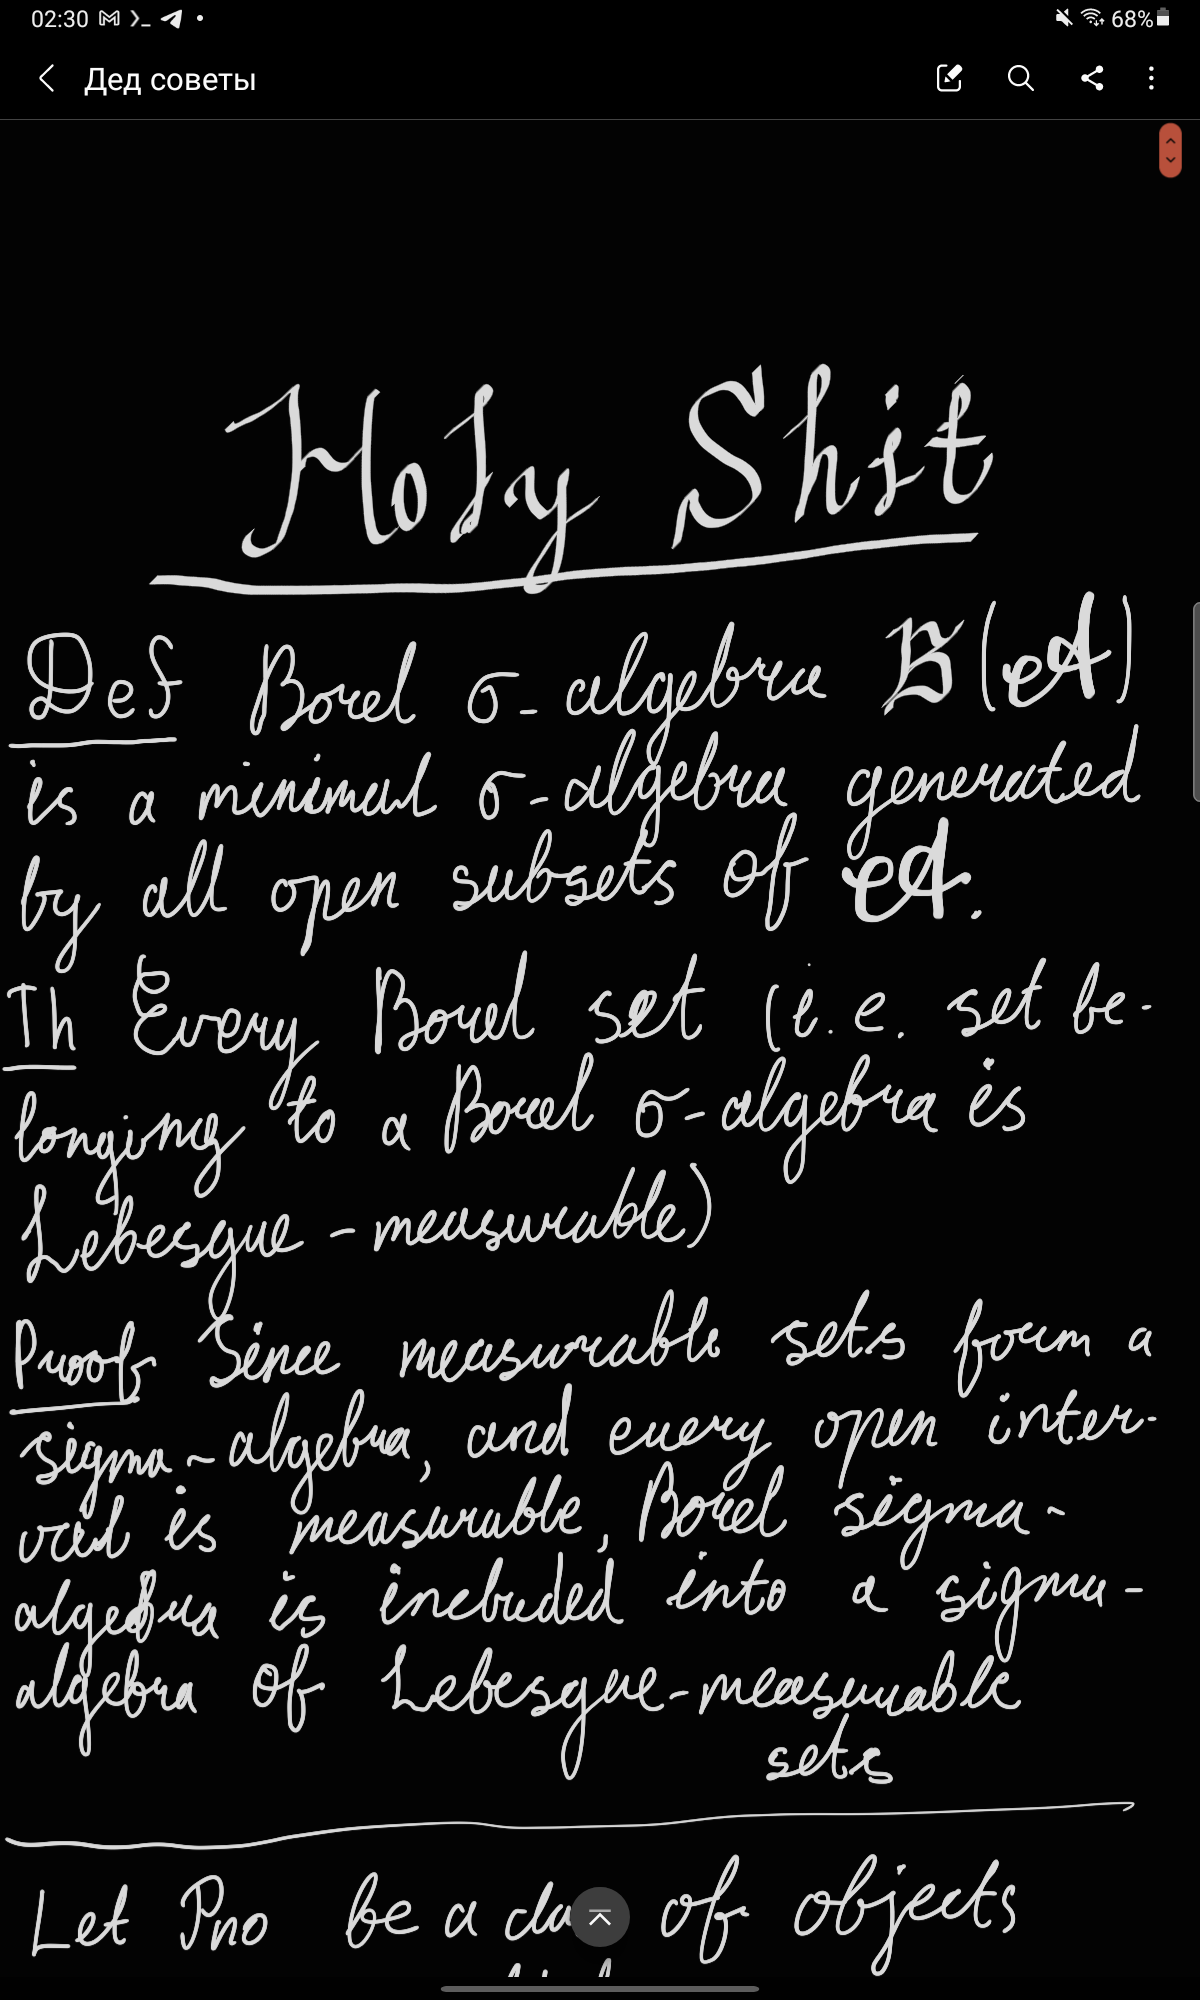 02:30
68%
Дед советы
Holy Shit
Def Borel σ-algebra 𝔅(𝒜)
is a minimal σ-algebra generated
by all open subsets of 𝒜.
Th Every Borel set (i.e. set be-
longing to a Borel σ-algebra is
Lebesgue-measurable)
Proof Since measurable sets form a
sigma-algebra, and every open inter-
val is measurable, Borel sigma-
algebra is included into a sigma-
algebra of Lebesgue-measurable
sets
Let Pno be a of objects